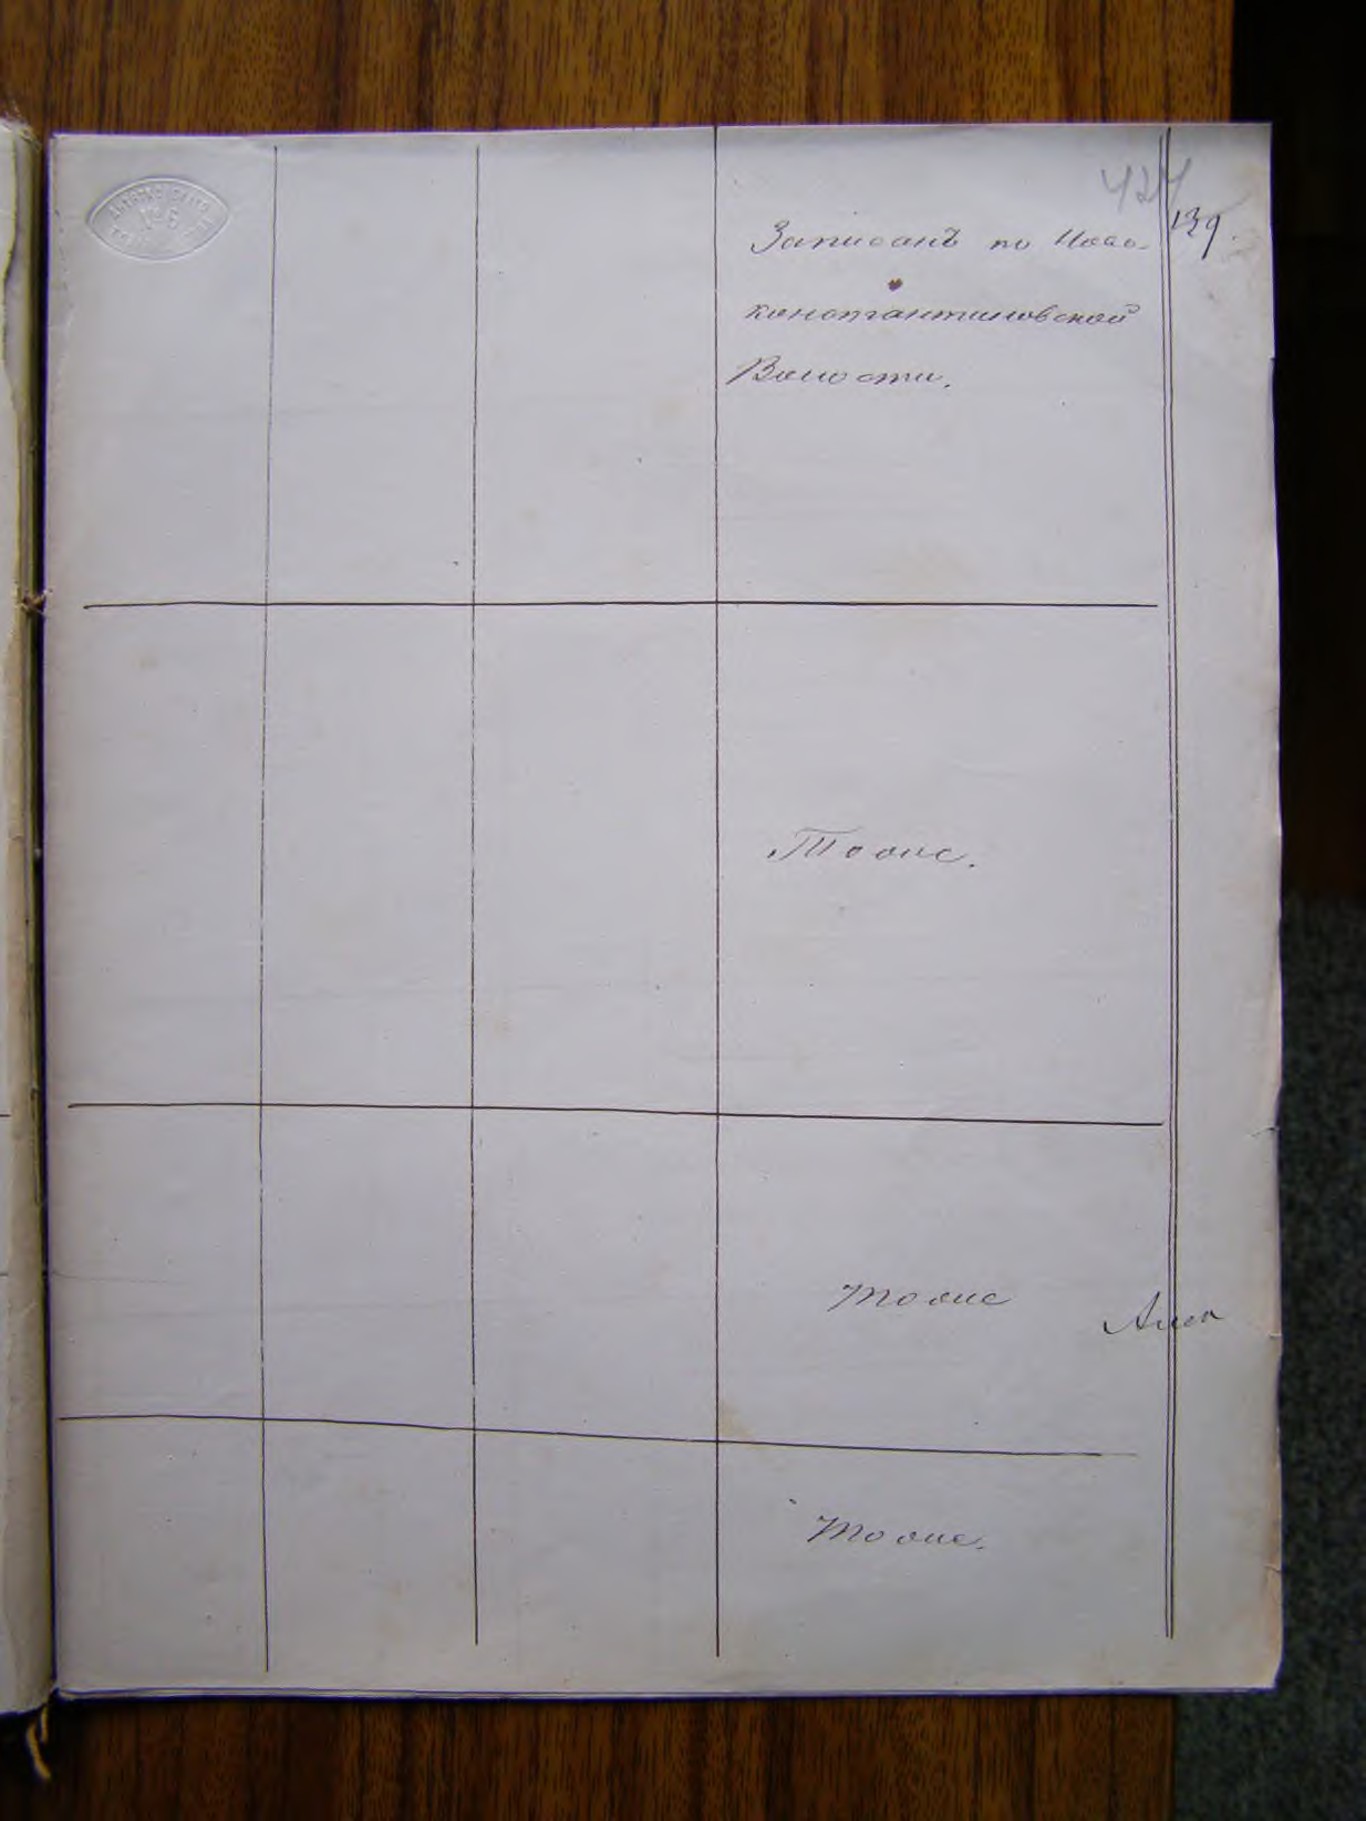 139.
Записанъ по Ново-
константиновской
Волости.
Тоже.
тоже
тоже.